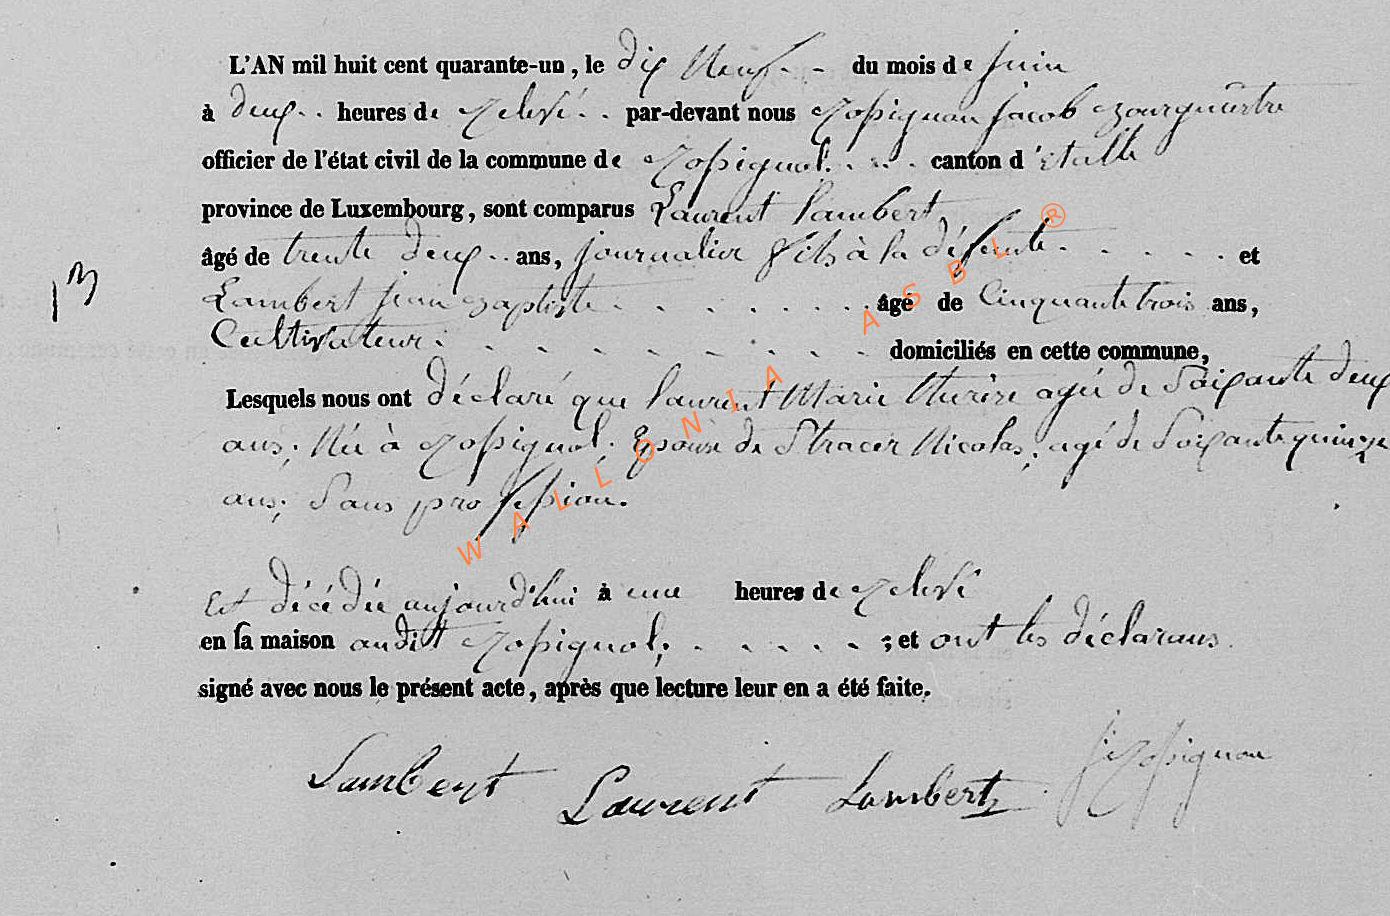 L'AN mil huit cent quarante-un, le dix Neuf - - du mois de juin
à deux - - heures de Relevé - - par-devant nous Rossignon jacob Bourguestre
officier de l'état civil de la commune de Rossignol. - - - canton d'étalle
province de Luxembourg, sont comparus Laurent Lambert,
âgé de trente deux - - ans, journalier fils à la défunte - - - - - et
13
Lambert jean Baptiste - - - - - - - âgé de Cinquante trois ans,
Cultivateur. - - - - - - - - - domiciliés en cette commune,
Lesquels nous ont déclaré que Laurent Marie agée de Soixante deux
ans, Née à Rossignol, Epouse de Nicolas, agé de Soixante quinze
ans, Sans profession.
Est décédée aujourd'hui à une heures de Relevé
en sa maison audit Rossignol, - - - - - ; et ont les déclarans
signé avec nous le présent acte, après que lecture leur en a été faite.
Lambert Laurent Lambert j Rossignon
WALLONIA ASBL ®